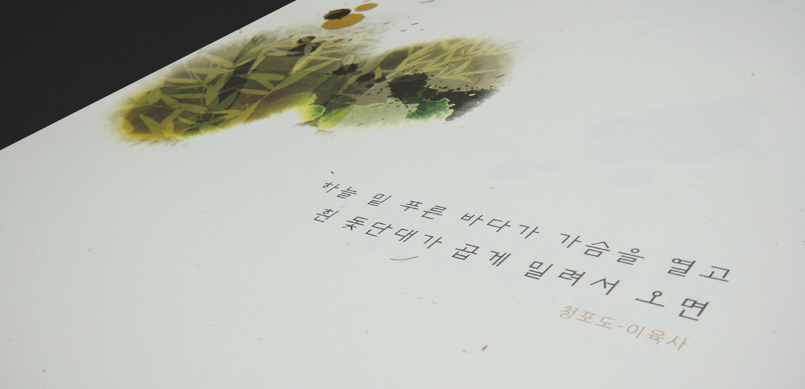 하늘 밑 푸른 바다가 가슴을 열고
흰 돛단대가 곱게 밀려서 오면
청포도-이육사